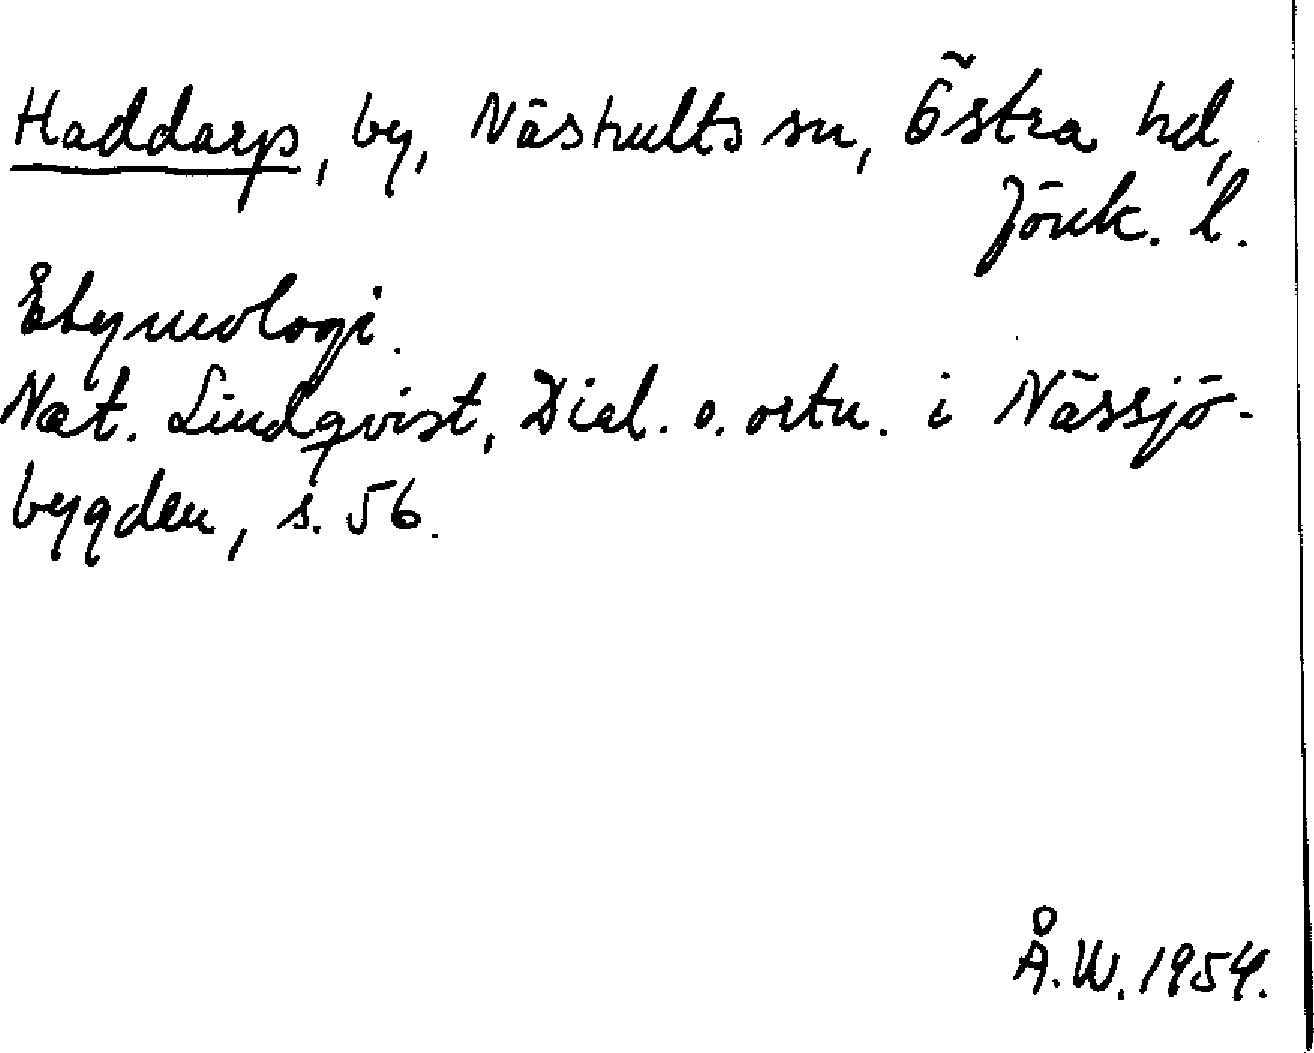 Haddarp, by, Näshults sn, Östra hd,
Jönk. l.
Etymologi.
Nat. Lindqvist, Dial. o. ortn. i Nässjö-
bygden, s. 56.
Å.W. 1954.